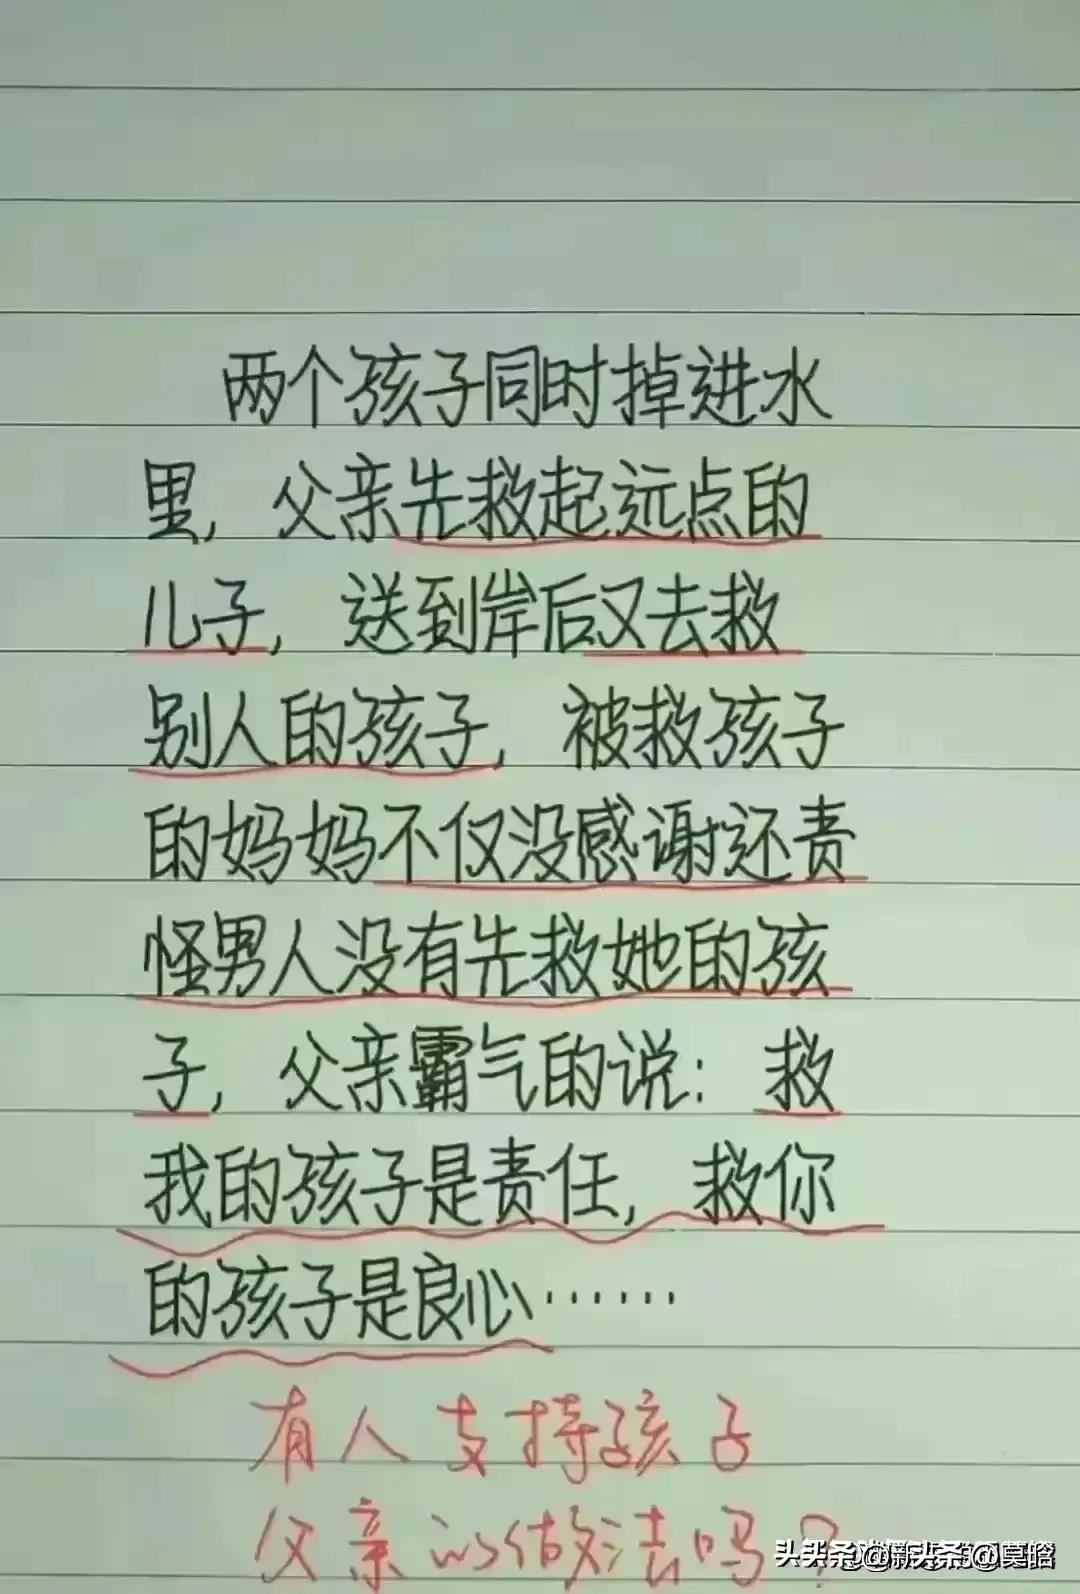 两个孩子同时掉进水
里，父亲先救起远点的
儿子，送到岸后又去救
别人的孩子，被救孩子
的妈妈不仅没感谢还责
怪男人没有先救她的孩
子，父亲霸气的说：救
我的孩子是责任，救你
的孩子是良心……
有人支持孩子
父亲的做法吗？
头条@